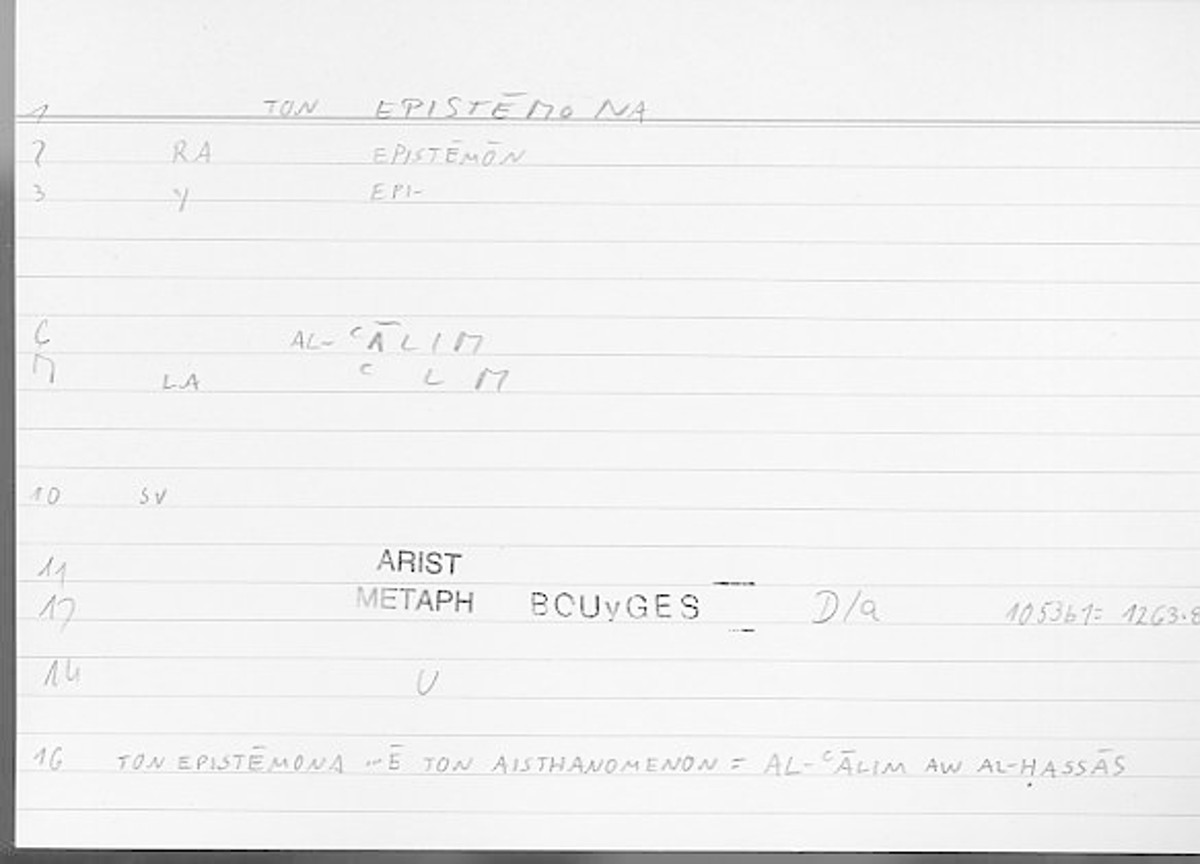 1 TON EPISTĒMONA
2 RA EPISTĒMŌN
3 Y EPI-
6 AL-ʿĀLIM
7 LA ʿ L M
10 SV
11 ARIST
12 METAPH BOUyGES D/a 1053b1= 1263.8
14 U
16 TON EPISTĒMONA -- Ē TON AISTHANOMENON = AL-ʿĀLIM AW AL-ḤASSĀS